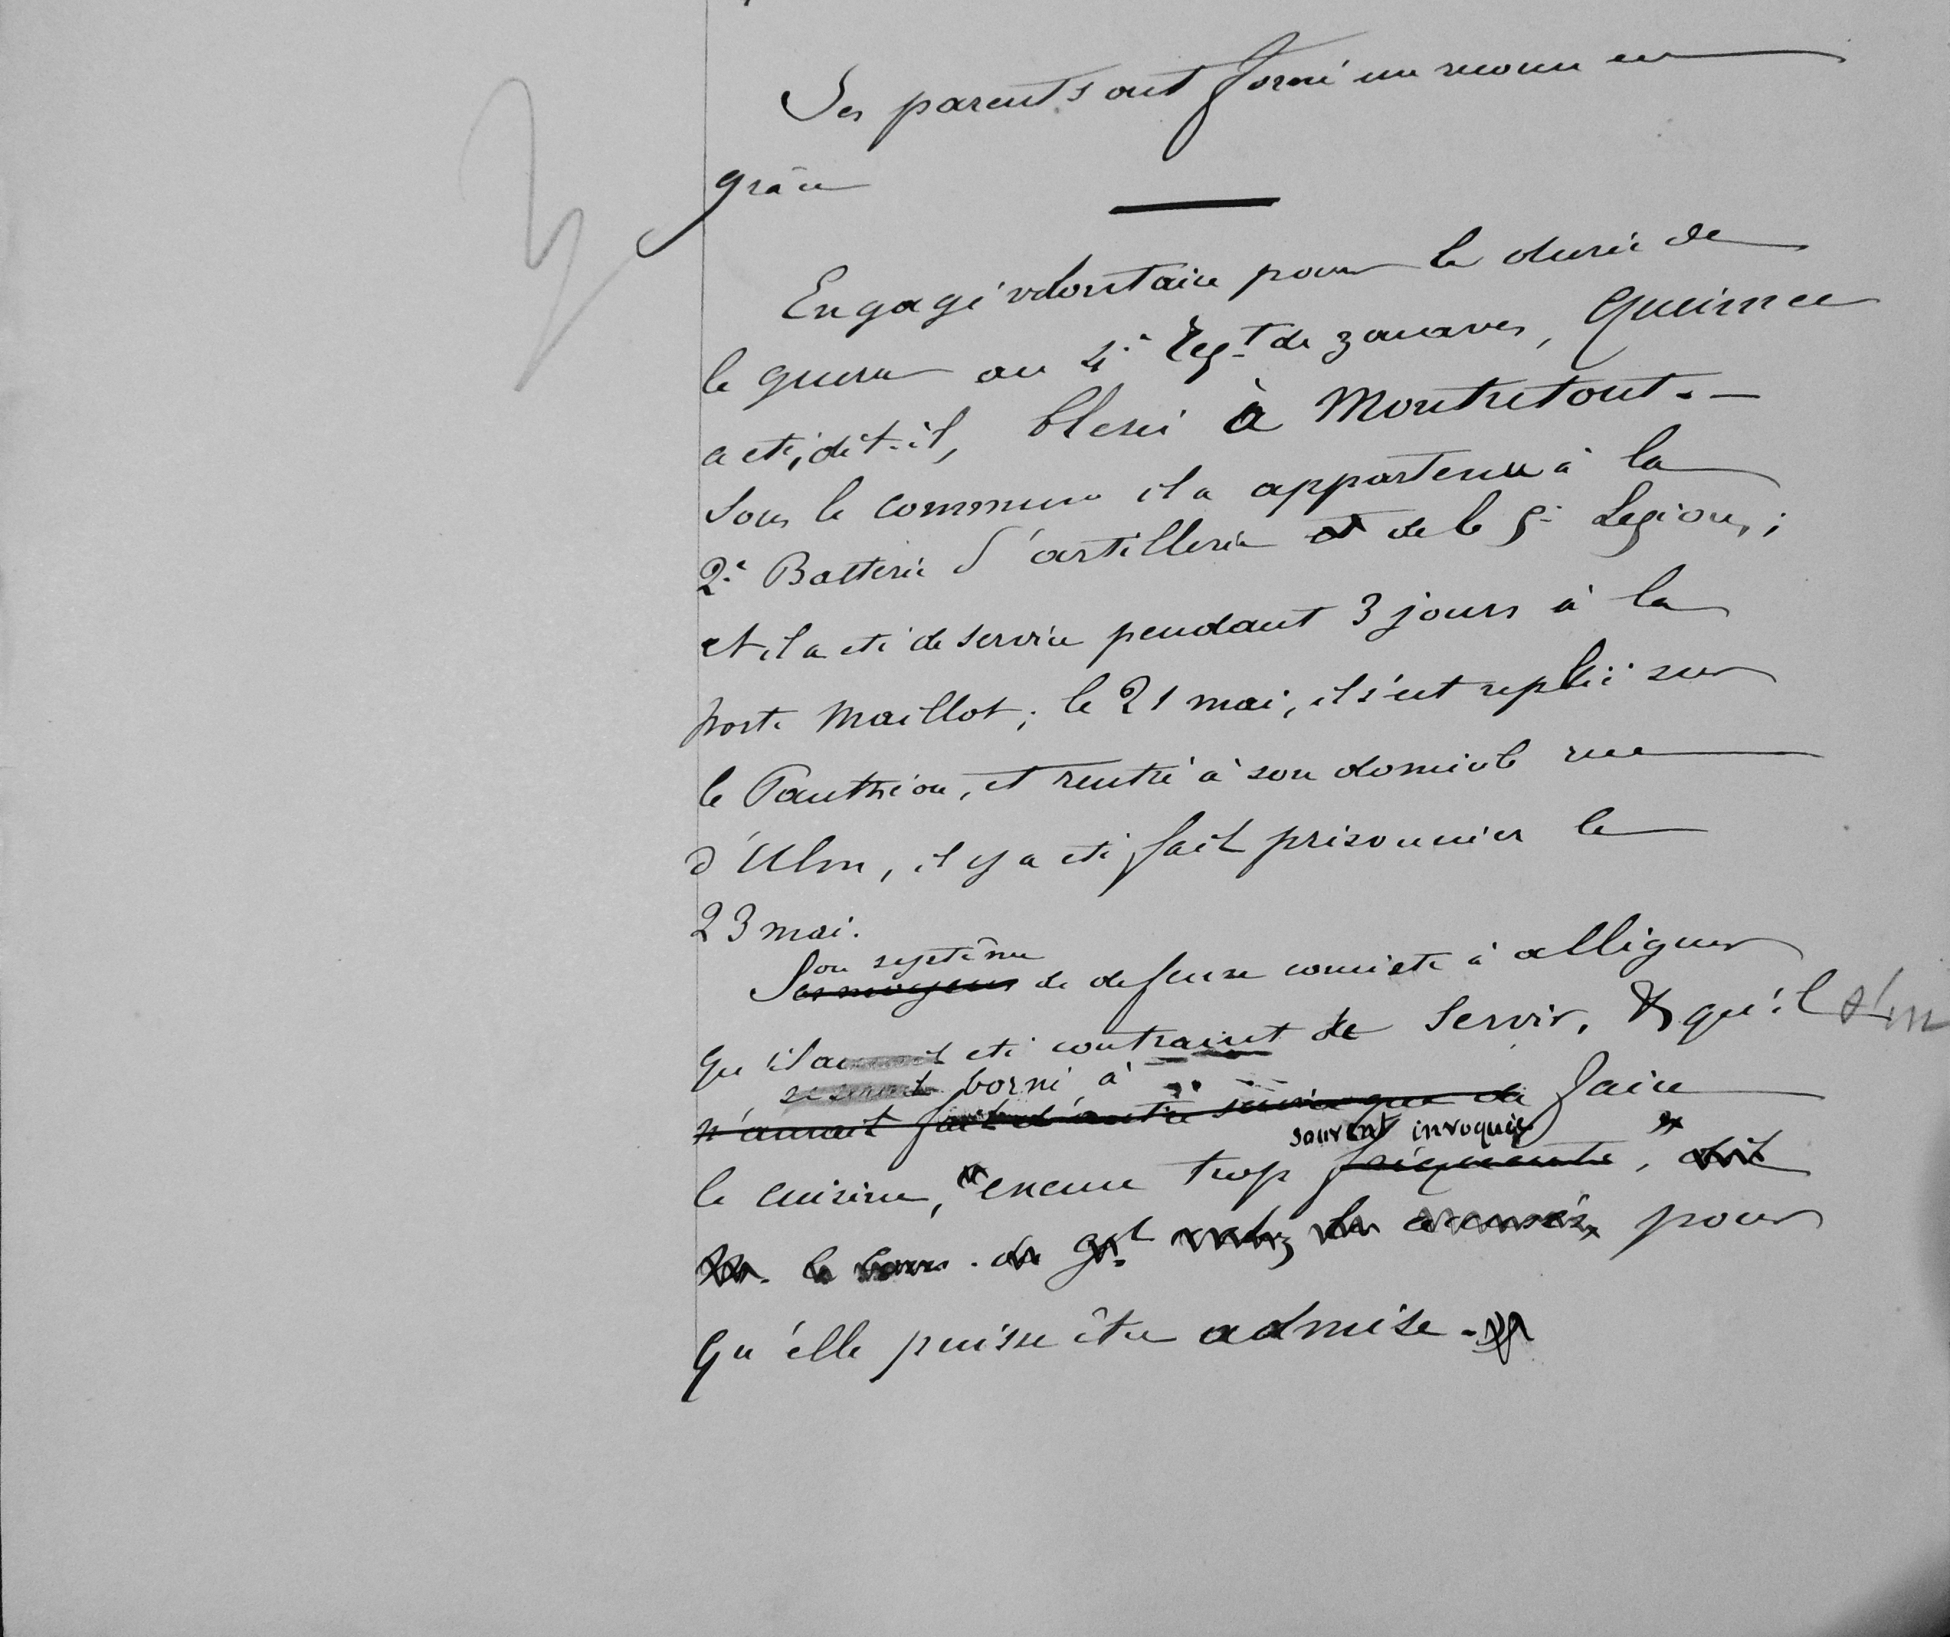 Ses parents ont formé un recours en
grâce
Engagé volontaire pour la durée de
la guerre au 4e Régt de zouaves, Queirnee
a été, dit-il, blessé à Montretout. —
Sous la commune il a appartenu à la
2e Batterie d'artillerie de la 5e Légion;
et il a été de service pendant 3 jours à la
porte Maillot; le 21 mai, il s'est replié sur
le Panthéon, et rentré à son domicile rue
d'Ulm, il y a été fait prisonnier le
23 mai.
Son système
Ses moyens de défense consiste à alléguer
qu'il a été contraint de servir, & qu'il s'est
se serait borné à
n'aurait fait d'autre service que de faire
souvent invoquée
la cuisine, "excuse trop fréquente," dit
M. le Comre. du Gt pour
qu'elle puisse être admise.